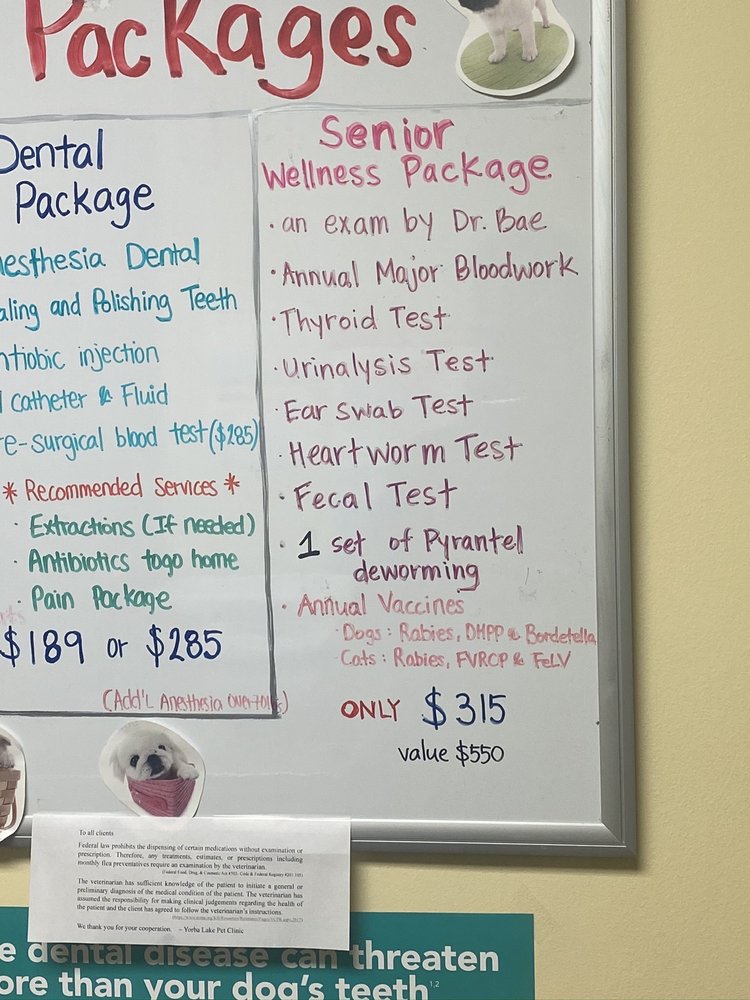 Packages
Dental
Package
nesthesia Dental
aling and Polishing Teeth
ntiobic injection
catheter & Fluid
e-surgical blood test ($285)
* Recommended Services *
· Extractions (If needed)
· Antibiotics togo home
· Pain Package
$189 or $285
(Add'l Anesthesia over 70lbs)
Senior
Wellness Package
· an exam by Dr. Bae
· Annual Major Bloodwork
· Thyroid Test
· Urinalysis Test
· Ear swab Test
· Heartworm Test
· Fecal Test
· 1 set of Pyrantel
deworming
· Annual Vaccines
· Dogs: Rabies, DHPP & Bordetella
· Cats: Rabies, FVRCP & FeLV
ONLY $315
value $550
To all clients
Federal law prohibits the dispensing of certain medications without examination or
prescription. Therefore, any treatments, estimates, or prescriptions including
monthly flea preventatives require an examination by the veterinarian.
The veterinarian has sufficient knowledge of the patient to initiate a general or
preliminary diagnosis of the medical condition of the patient. The veterinarian has
assumed the responsibility for making clinical judgements regarding the health of
the patient and the client has agreed to follow the veterinarian's instructions.
We thank you for your cooperation. ~ Yorba Lake Pet Clinic
e dental disease can threaten
ore than your dog's teeth 1,2